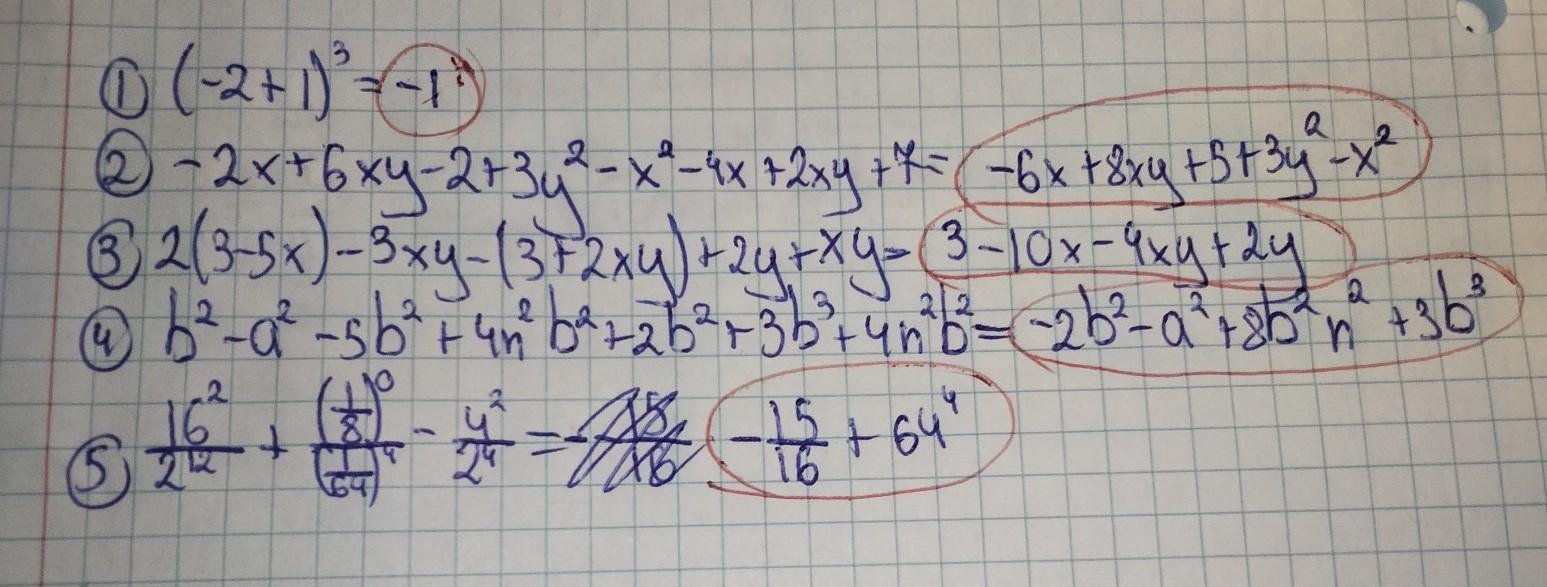 ① (-2+1)³ = -1
② -2x+6xy-2+3y²-x²-4x+2xy+7= -6x+8xy+5+3y²-x²
③ 2(3-5x)-3xy-(3+2xy)+2y+xy= 3-10x-4xy+2y
④ b²-a²-5b²+4n²b²+2b²+3b³+4n²b²= -2b²-a²+8b²n²+3b³
⑤ 16²/2¹² + (1/8)⁰/(1/64)⁴ - 4²/2⁴ = -15/16 + 64⁴